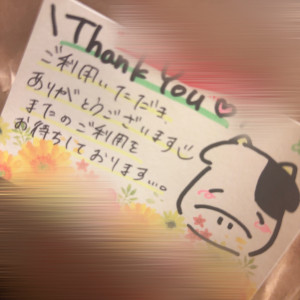 \Thank You♡
ご利用いただき
ありがとうございます
またのご利用を
お待ちしております...。